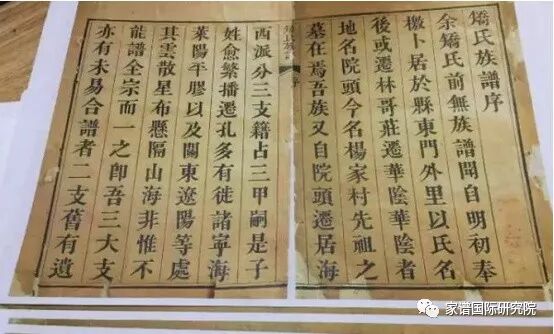 矯氏族譜序
余矯氏前無族譜聞自明初奉
檄卜居於縣東門外里以氏名
後或遷林哥莊遷華陰華陰者
地名院頭今名楊家村先祖之
墓在焉吾族又自院頭遷居海
西派分三支籍占三甲嗣是子
姓愈繁播遷孔多有徙諸寧海
萊陽平膠以及關東遼陽等處
其雲散星布懸隔山海非惟不
能譜全宗而一之即吾三大支
亦有未易合譜者二支舊有遺
家谱国际研究院